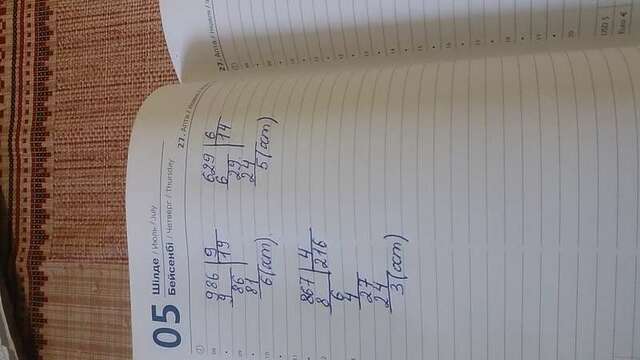 05
Шілде / Июль / July
Бейсенбі / Четверг / Thursday
27. Апта / Неделя /
986 9
9 19
86
81
6 (ост)
629 6
6 14
29
24
5 (ост)
867 4
8 216
6
4
27
24
3 (ост)
27. Апта / Неделя /
USD $
Euro €